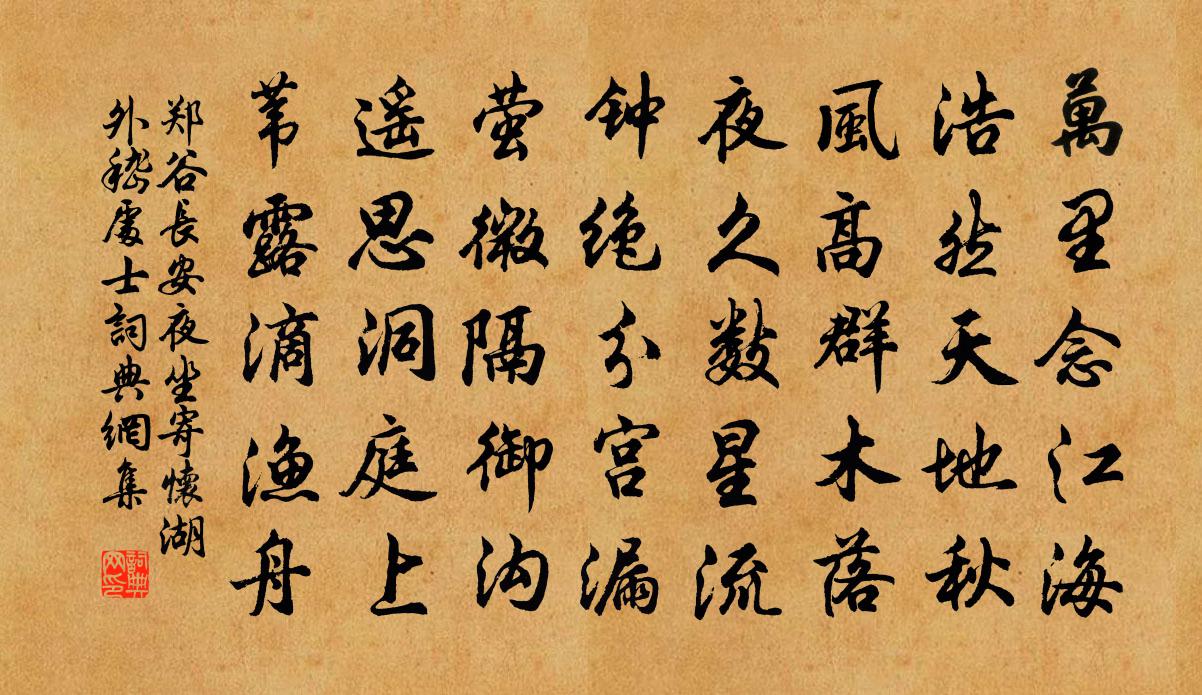 萬里念江海
浩然天地秋
風高群木落
夜久数星流
钟绝分宫漏
萤微隔御沟
遥思洞庭上
苇露滴渔舟
郑谷長安夜坐寄懷湖
外嵇處士詞典網集
詞典网印